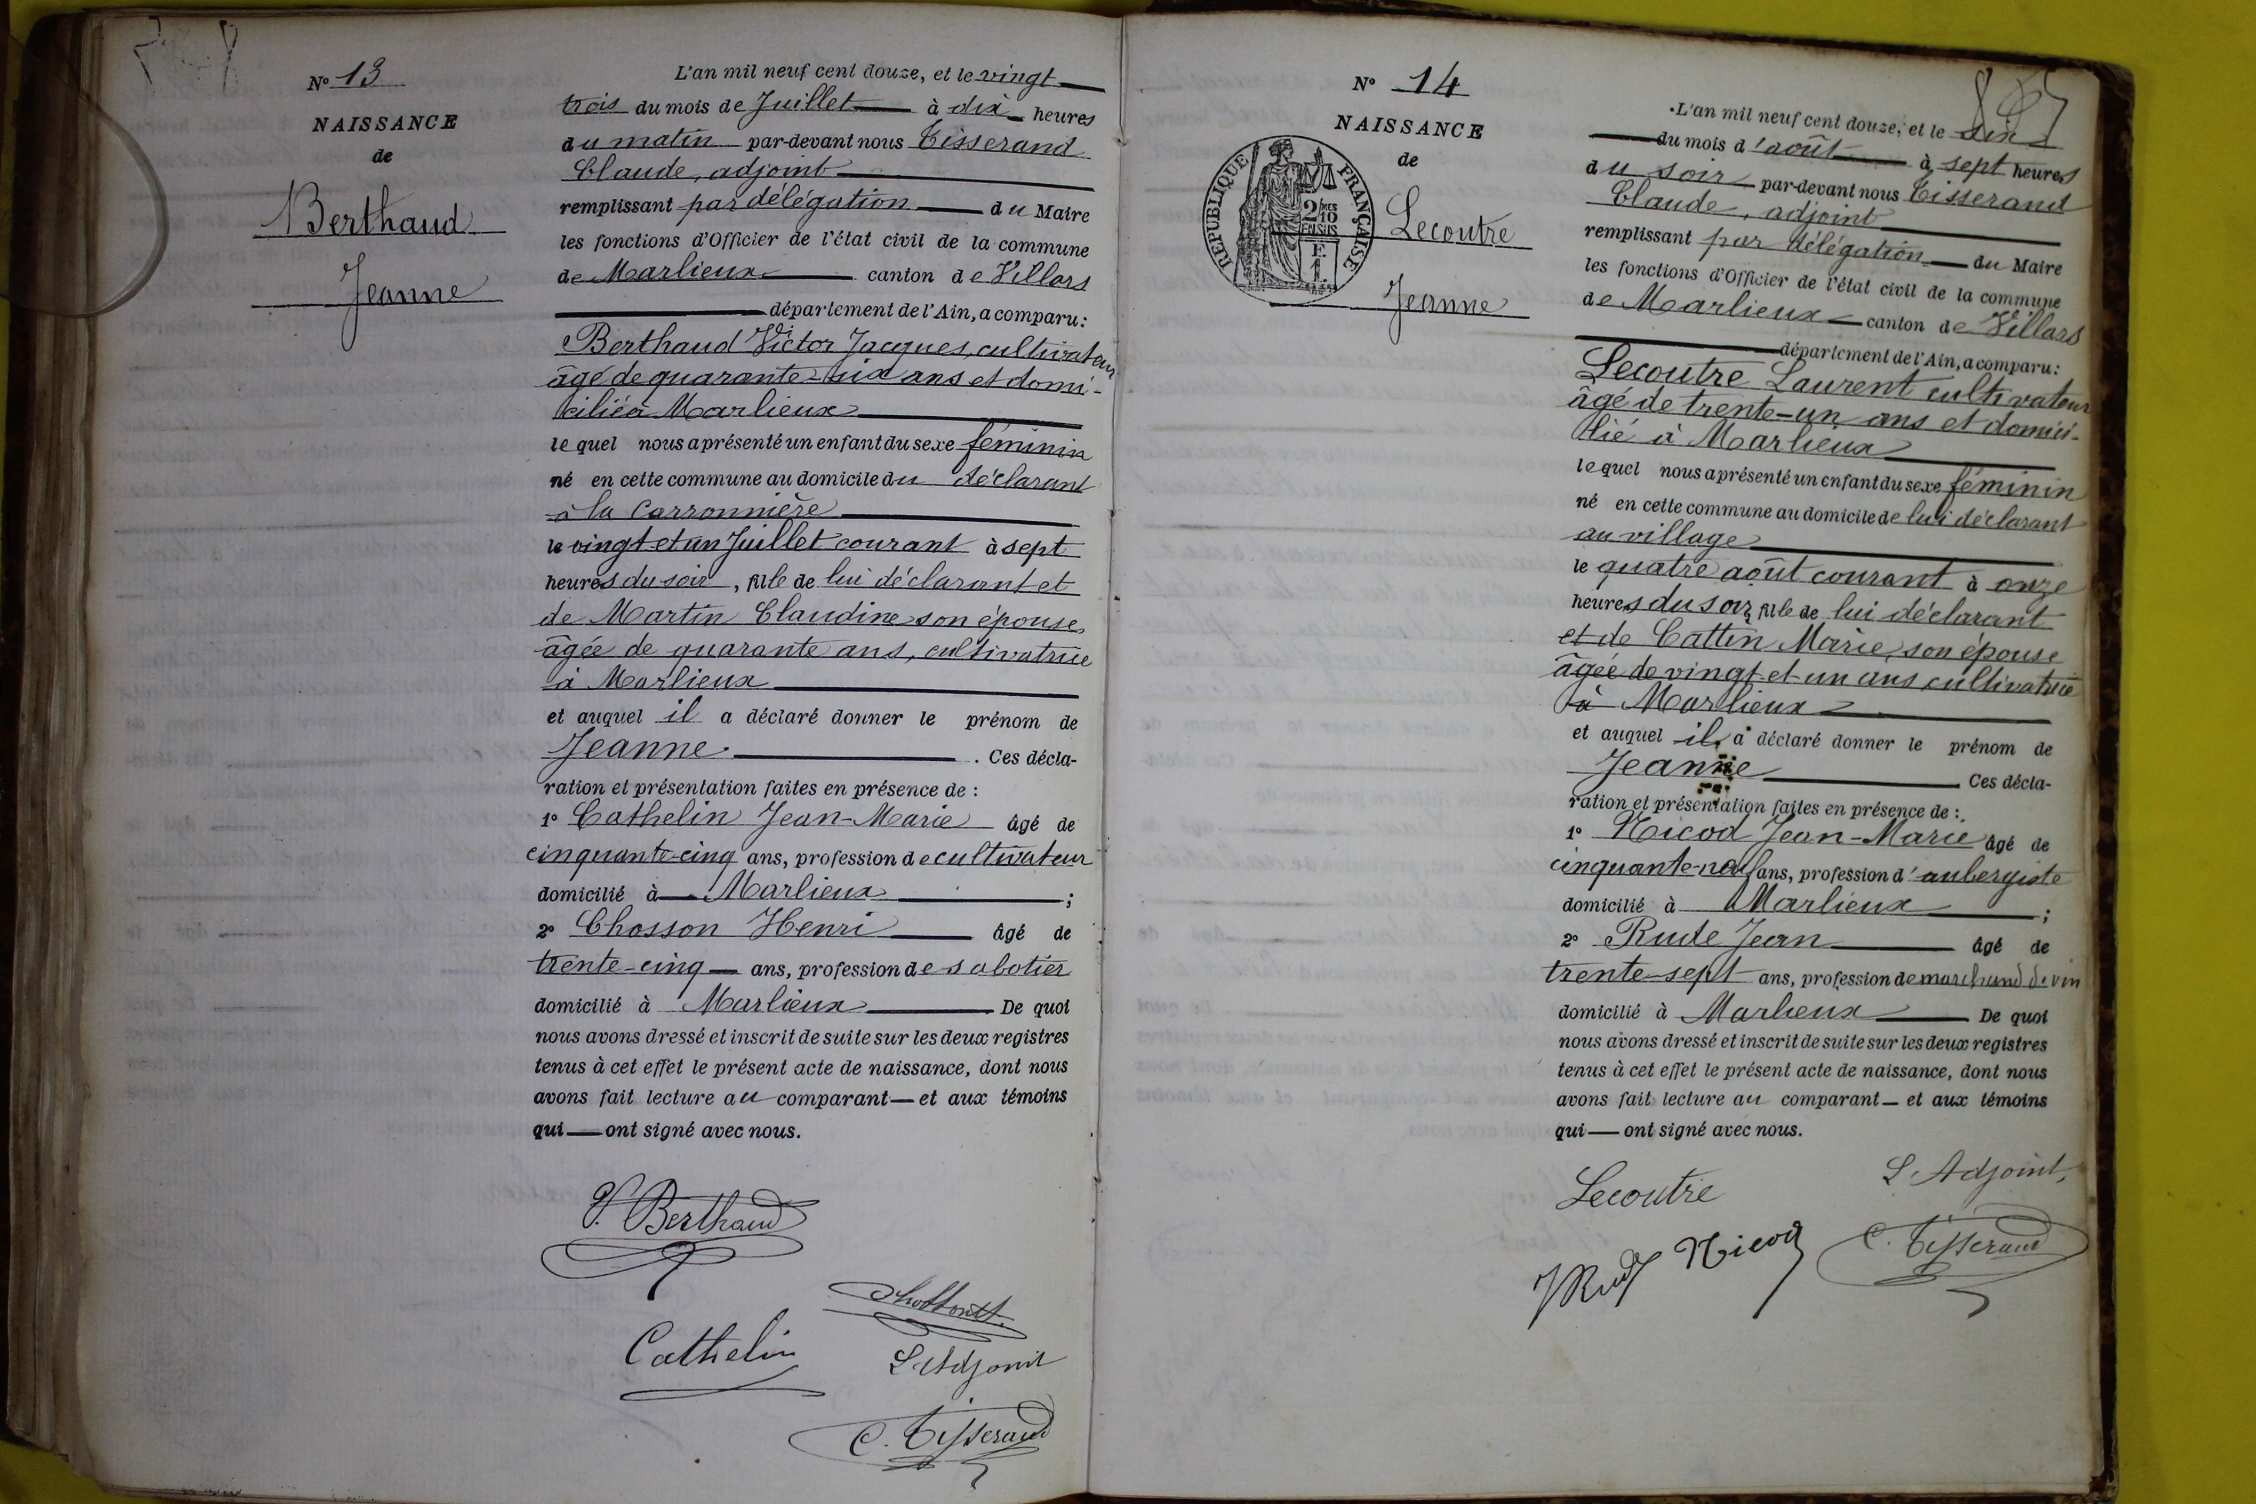 N° 13
NAISSANCE
de
Berthaud
Jeanne
L'an mil neuf cent douze, et le vingt
trois du mois de Juillet à dix heures
du matin par-devant nous Tisserand
Claude, adjoint
remplissant par délégation du Maire
les fonctions d'Officier de l'état civil de la commune
de Marlieux canton de Villars
département de l'Ain, a comparu :
Berthaud Victor Jacques, cultivateur
âgé de quarante-six ans et domi-
cilié à Marlieux
lequel nous a présenté un enfant du sexe féminin
né en cette commune au domicile du déclarant
à la Carronnière
le vingt et un Juillet courant à sept
heures du soir, fille de lui déclarant et
de Martin Claudine son épouse,
âgée de quarante ans, cultivatrice
à Marlieux
et auquel il a déclaré donner le prénom de
Jeanne. Ces décla-
ration et présentation faites en présence de :
1° Cathelin Jean-Marie âgé de
cinquante-cinq ans, profession de cultivateur
domicilié à Marlieux ;
2° Chosson Henri âgé de
trente-cinq ans, profession de sabotier
domicilié à Marlieux De quoi
nous avons dressé et inscrit de suite sur les deux registres
tenus à cet effet le présent acte de naissance, dont nous
avons fait lecture au comparant et aux témoins
qui ont signé avec nous.
V. Berthaud
Cathelin
L'Adjoint
C. Tisserand
N° 14
NAISSANCE
de
REPUBLIQUE FRANÇAISE
2/10 EN SUS
F.
1
Lecoutre
Jeanne
L'an mil neuf cent douze, et le six
du mois d'août à sept heures
du soir par-devant nous Tisserand
Claude, adjoint
remplissant par délégation du Maire
les fonctions d'Officier de l'état civil de la commune
de Marlieux canton de Villars
département de l'Ain, a comparu :
Lecoutre Laurent cultivateur
âgé de trente-un ans et domici-
lié à Marlieux
lequel nous a présenté un enfant du sexe féminin
né en cette commune au domicile de lui déclarant
au village
le quatre août courant à onze
heures du soir, fille de lui déclarant
et de Cattin Marie, son épouse
âgée de vingt-et-un ans, cultivatrice
à Marlieux
et auquel il a déclaré donner le prénom de
Jeanne Ces décla-
ration et présentation faites en présence de :
1° Nicod Jean-Marie âgé de
cinquante-neuf ans, profession d'aubergiste
domicilié à Marlieux ;
2° Rude Jean âgé de
trente-sept ans, profession de marchand de vin
domicilié à Marlieux De quoi
nous avons dressé et inscrit de suite sur les deux registres
tenus à cet effet le présent acte de naissance, dont nous
avons fait lecture au comparant et aux témoins
qui ont signé avec nous.
Lecoutre
L'Adjoint,
J Rude Nicod
C. Tisserand